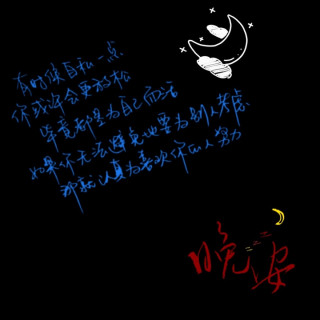 有时候自私一点
你或许会更轻松
毕竟都是为自己而活
如果你无法避免地要为别人考虑
那就认真为喜欢你的人努力
晚安